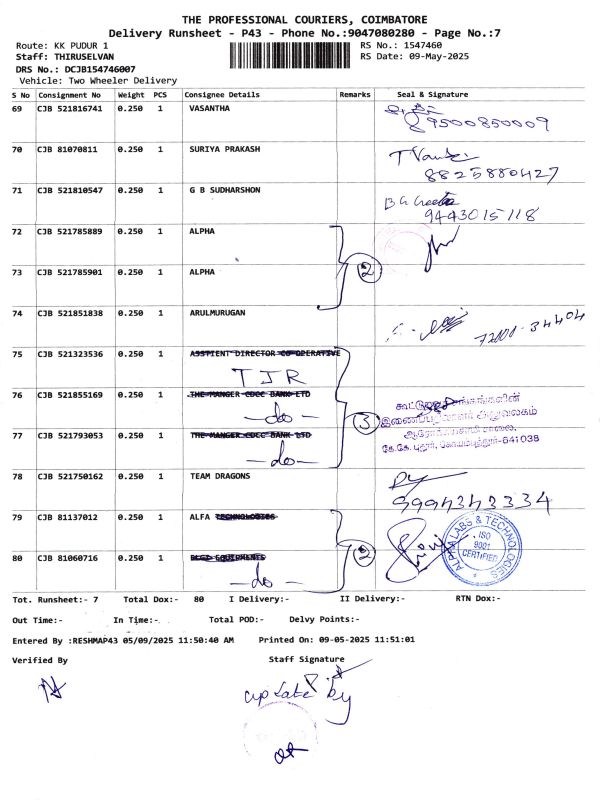 THE PROFESSIONAL COURIERS, COIMBATORE
Delivery Runsheet - P43 - Phone No.:9047080280 - Page No.:7
Route: KK PUDUR 1
RS No.: 1547460
Staff: THIRUSELVAN
RS Date: 09-May-2025
DRS No.: DCJB154746007
Vehicle: Two Wheeler Delivery
S No Consignment No Weight PCS Consignee Details Remarks Seal & Signature
69 CJB 521816741 0.250 1 VASANTHA
9500850009
70 CJB 81070811 0.250 1 SURIYA PRAKASH
8825880427
71 CJB 521810547 0.250 1 G B SUDHARSHON
B G Geetha
9443015118
72 CJB 521785889 0.250 1 ALPHA
2
73 CJB 521785901 0.250 1 ALPHA
74 CJB 521851838 0.250 1 ARULMURUGAN
72001-34404
75 CJB 521323536 0.250 1 ASSTIENT DIRECTOR CO OPERATIVE
TJR
76 CJB 521855169 0.250 1 THE MANGER CDCC BANK LTD
-do-
3
77 CJB 521793053 0.250 1 THE MANGER CDCC BANK LTD
-do-
கே.கே. புதூர், கோயம்புத்தூர்-641038
78 CJB 521750162 0.250 1 TEAM DRAGONS
9994343334
79 CJB 81137012 0.250 1 ALFA TECHNOLOGIES
2
ALPHA LABS & TECHNOLOGIES
ISO
9001
CERTIFIED
80 CJB 81060716 0.250 1 EQUIPMENTS
-do-
Tot. Runsheet:- 7 Total Dox:- 80 I Delivery:- II Delivery:- RTN Dox:-
Out Time:- In Time:- Total POD:- Delvy Points:-
Entered By :RESHMAP43 05/09/2025 11:50:40 AM Printed On: 09-05-2025 11:51:01
Verified By Staff Signature
update by